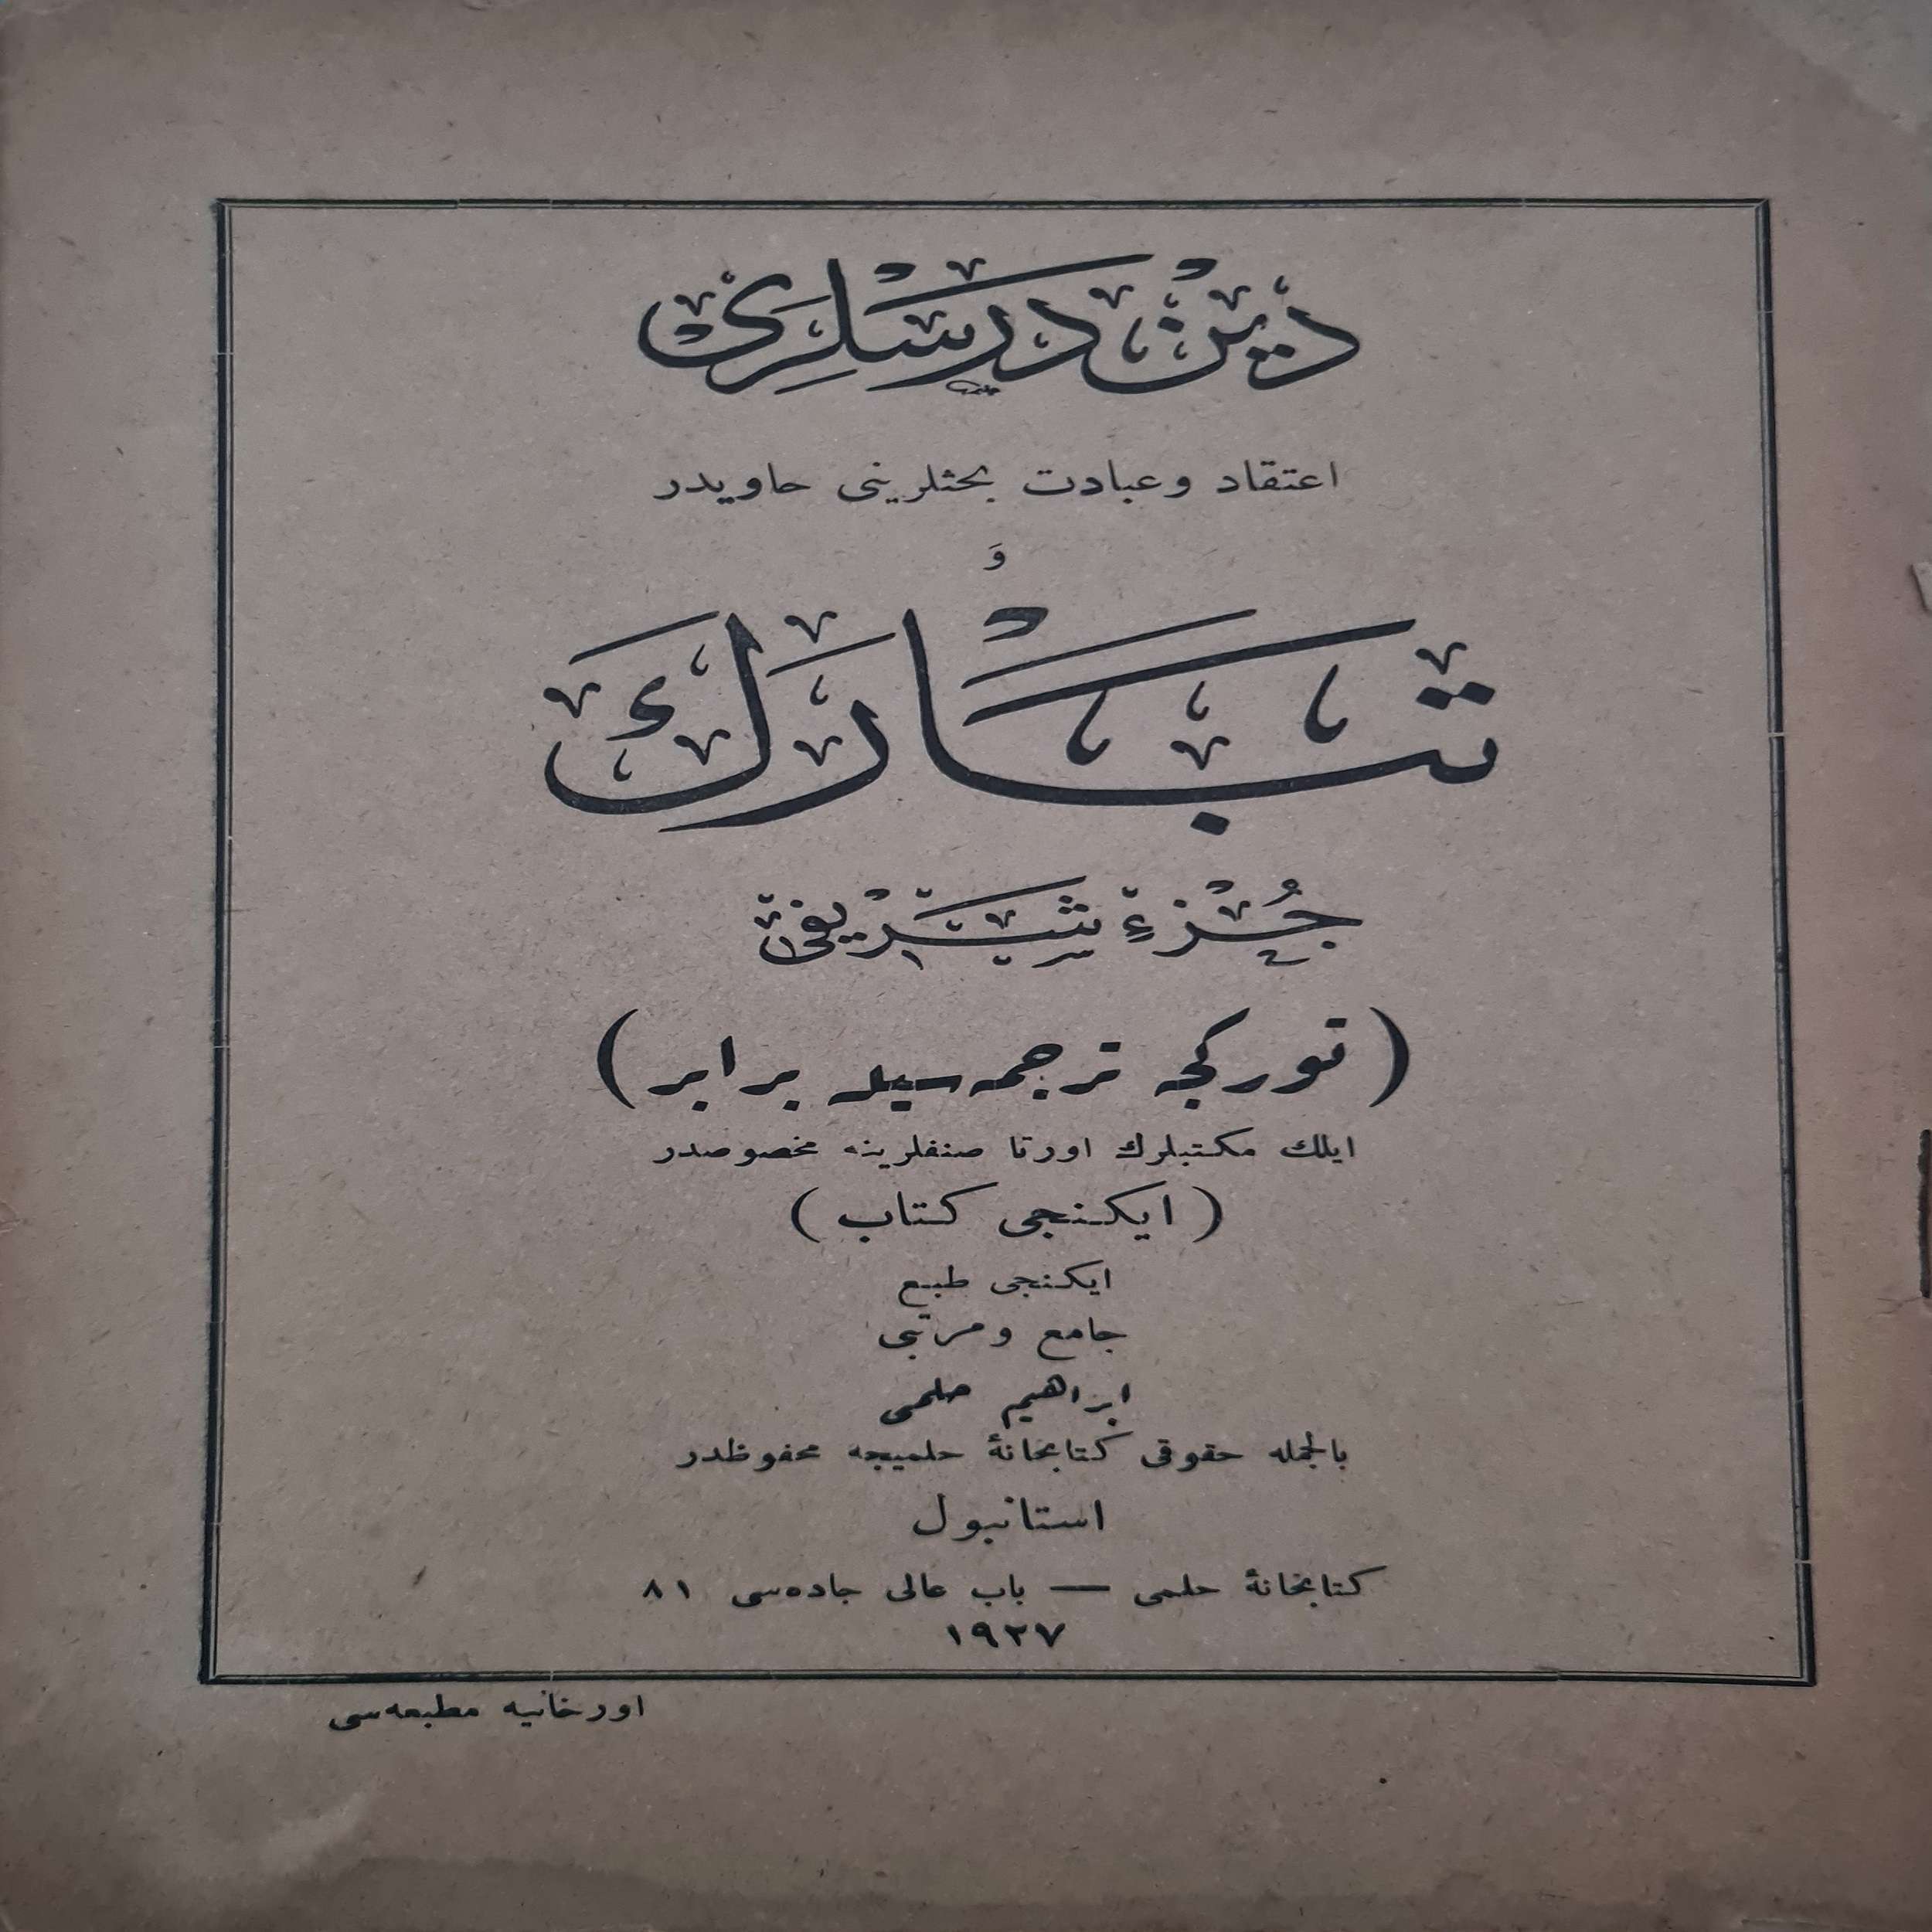 دين درسلری
اعتقاد وعبادت بحثلرينی حاويدر
وَ
تبارك
جُزءِ شريفی
( توركجه ترجمه سيله برابر )
ايلك مكتبلرك اورتا صنفلرينه مخصوصدر
( ايكنجی كتاب )
ايكنجی طبع
جامع ومرتبی
ابراهيم حلمی
بالجمله حقوقی كتابخانهٔ حلميجه محفوظدر
استانبول
كتابخانهٔ حلمی — باب عالی جاده‌سی ٨١
١٩٢٧
اورخانيه مطبعه‌سی